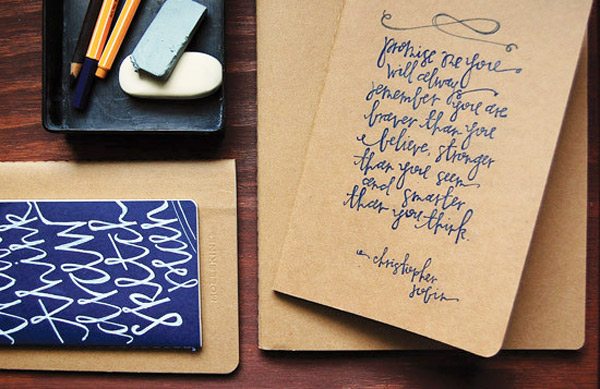 promise me you
will always
remember you are
braver than you
believe, stronger
than you seem
and smarter
than you think.
christopher
robin
think
draw
sketch
MOLESKINE